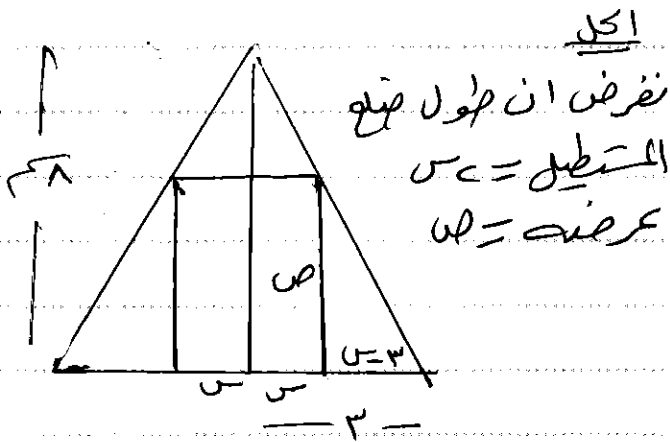 الحل
نفرض ان طول ضلع
المستطيل = ٢س
عرضه = ص
٨سم
ص
٣-س
س س
٣